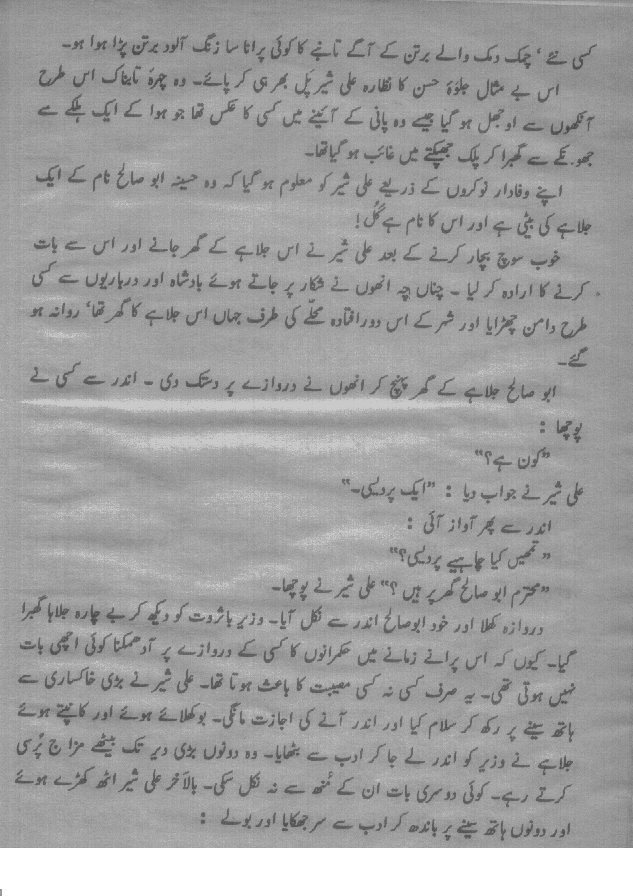 کسی نئے، چمک دمک والے برتن کے آگے تانبے کا کوئی پرانا سا زنگ آلود برتن پڑا ہوا ہو۔
اس بے مثال جلوۂ حسن کا نظارہ علی شیر پل بھر ہی کر پائے۔ وہ چہرۂ تابناک اس طرح
آنکھوں سے اوجھل ہو گیا جیسے وہ پانی کے آئینے میں کسی کا عکس تھا جو ہوا کے ایک ہلکے سے
جھونکے سے گھبرا کر پلک جھپکتے میں غائب ہو گیا تھا۔
اپنے وفادار نوکروں کے ذریعے علی شیر کو معلوم ہو گیا کہ وہ حسینہ ابو صالح نام کے ایک
جلاہے کی بیٹی ہے اور اس کا نام ہے گُل!
خوب سوچ بچار کرنے کے بعد علی شیر نے اس جلاہے کے گھر جانے اور اس سے بات
کرنے کا ارادہ کر لیا ۔ چناں چہ انھوں نے شکار پر جاتے ہوئے بادشاہ اور درباریوں سے کسی
طرح دامن چھڑایا اور شہر کے اس دور افتادہ محلّے کی طرف جہاں اس جلاہے کا گھر تھا، روانہ ہو
گئے۔
ابو صالح جلاہے کے گھر پہنچ کر انھوں نے دروازے پر دستک دی ۔ اندر سے کسی نے
پوچھا :
"کون ہے؟"
علی شیر نے جواب دیا : "ایک پردیسی۔"
اندر سے پھر آواز آئی :
"تمھیں کیا چاہیے پردیسی؟"
"محترم ابو صالح گھر پر ہیں ؟" علی شیر نے پوچھا۔
دروازہ کھلا اور خود ابو صالح اندر سے نکل آیا۔ وزیر باثروت کو دیکھ کر بے چارہ جلاہا گھبرا
گیا۔ کیوں کہ اس پرانے زمانے میں حکمرانوں کا کسی کے دروازے پر آ دھمکنا کوئی اچھی بات
نہیں ہوتی تھی۔ یہ صرف کسی نہ کسی مصیبت کا باعث ہوتا تھا۔ علی شیر نے بڑی خاکساری سے
ہاتھ سینے پر رکھ کر سلام کیا اور اندر آنے کی اجازت مانگی۔ بوکھلائے ہوئے اور کانپتے ہوئے
جلاہے نے وزیر کو اندر لے جا کر ادب سے بٹھایا۔ وہ دونوں بڑی دیر تک بیٹھے مزاج پُرسی
کرتے رہے۔ کوئی دوسری بات ان کے مُنھ سے نہ نکل سکی۔ بالآخر علی شیر اٹھ کھڑے ہوئے
اور دونوں ہاتھ سینے پر باندھ کر ادب سے سر جھکایا اور بولے :